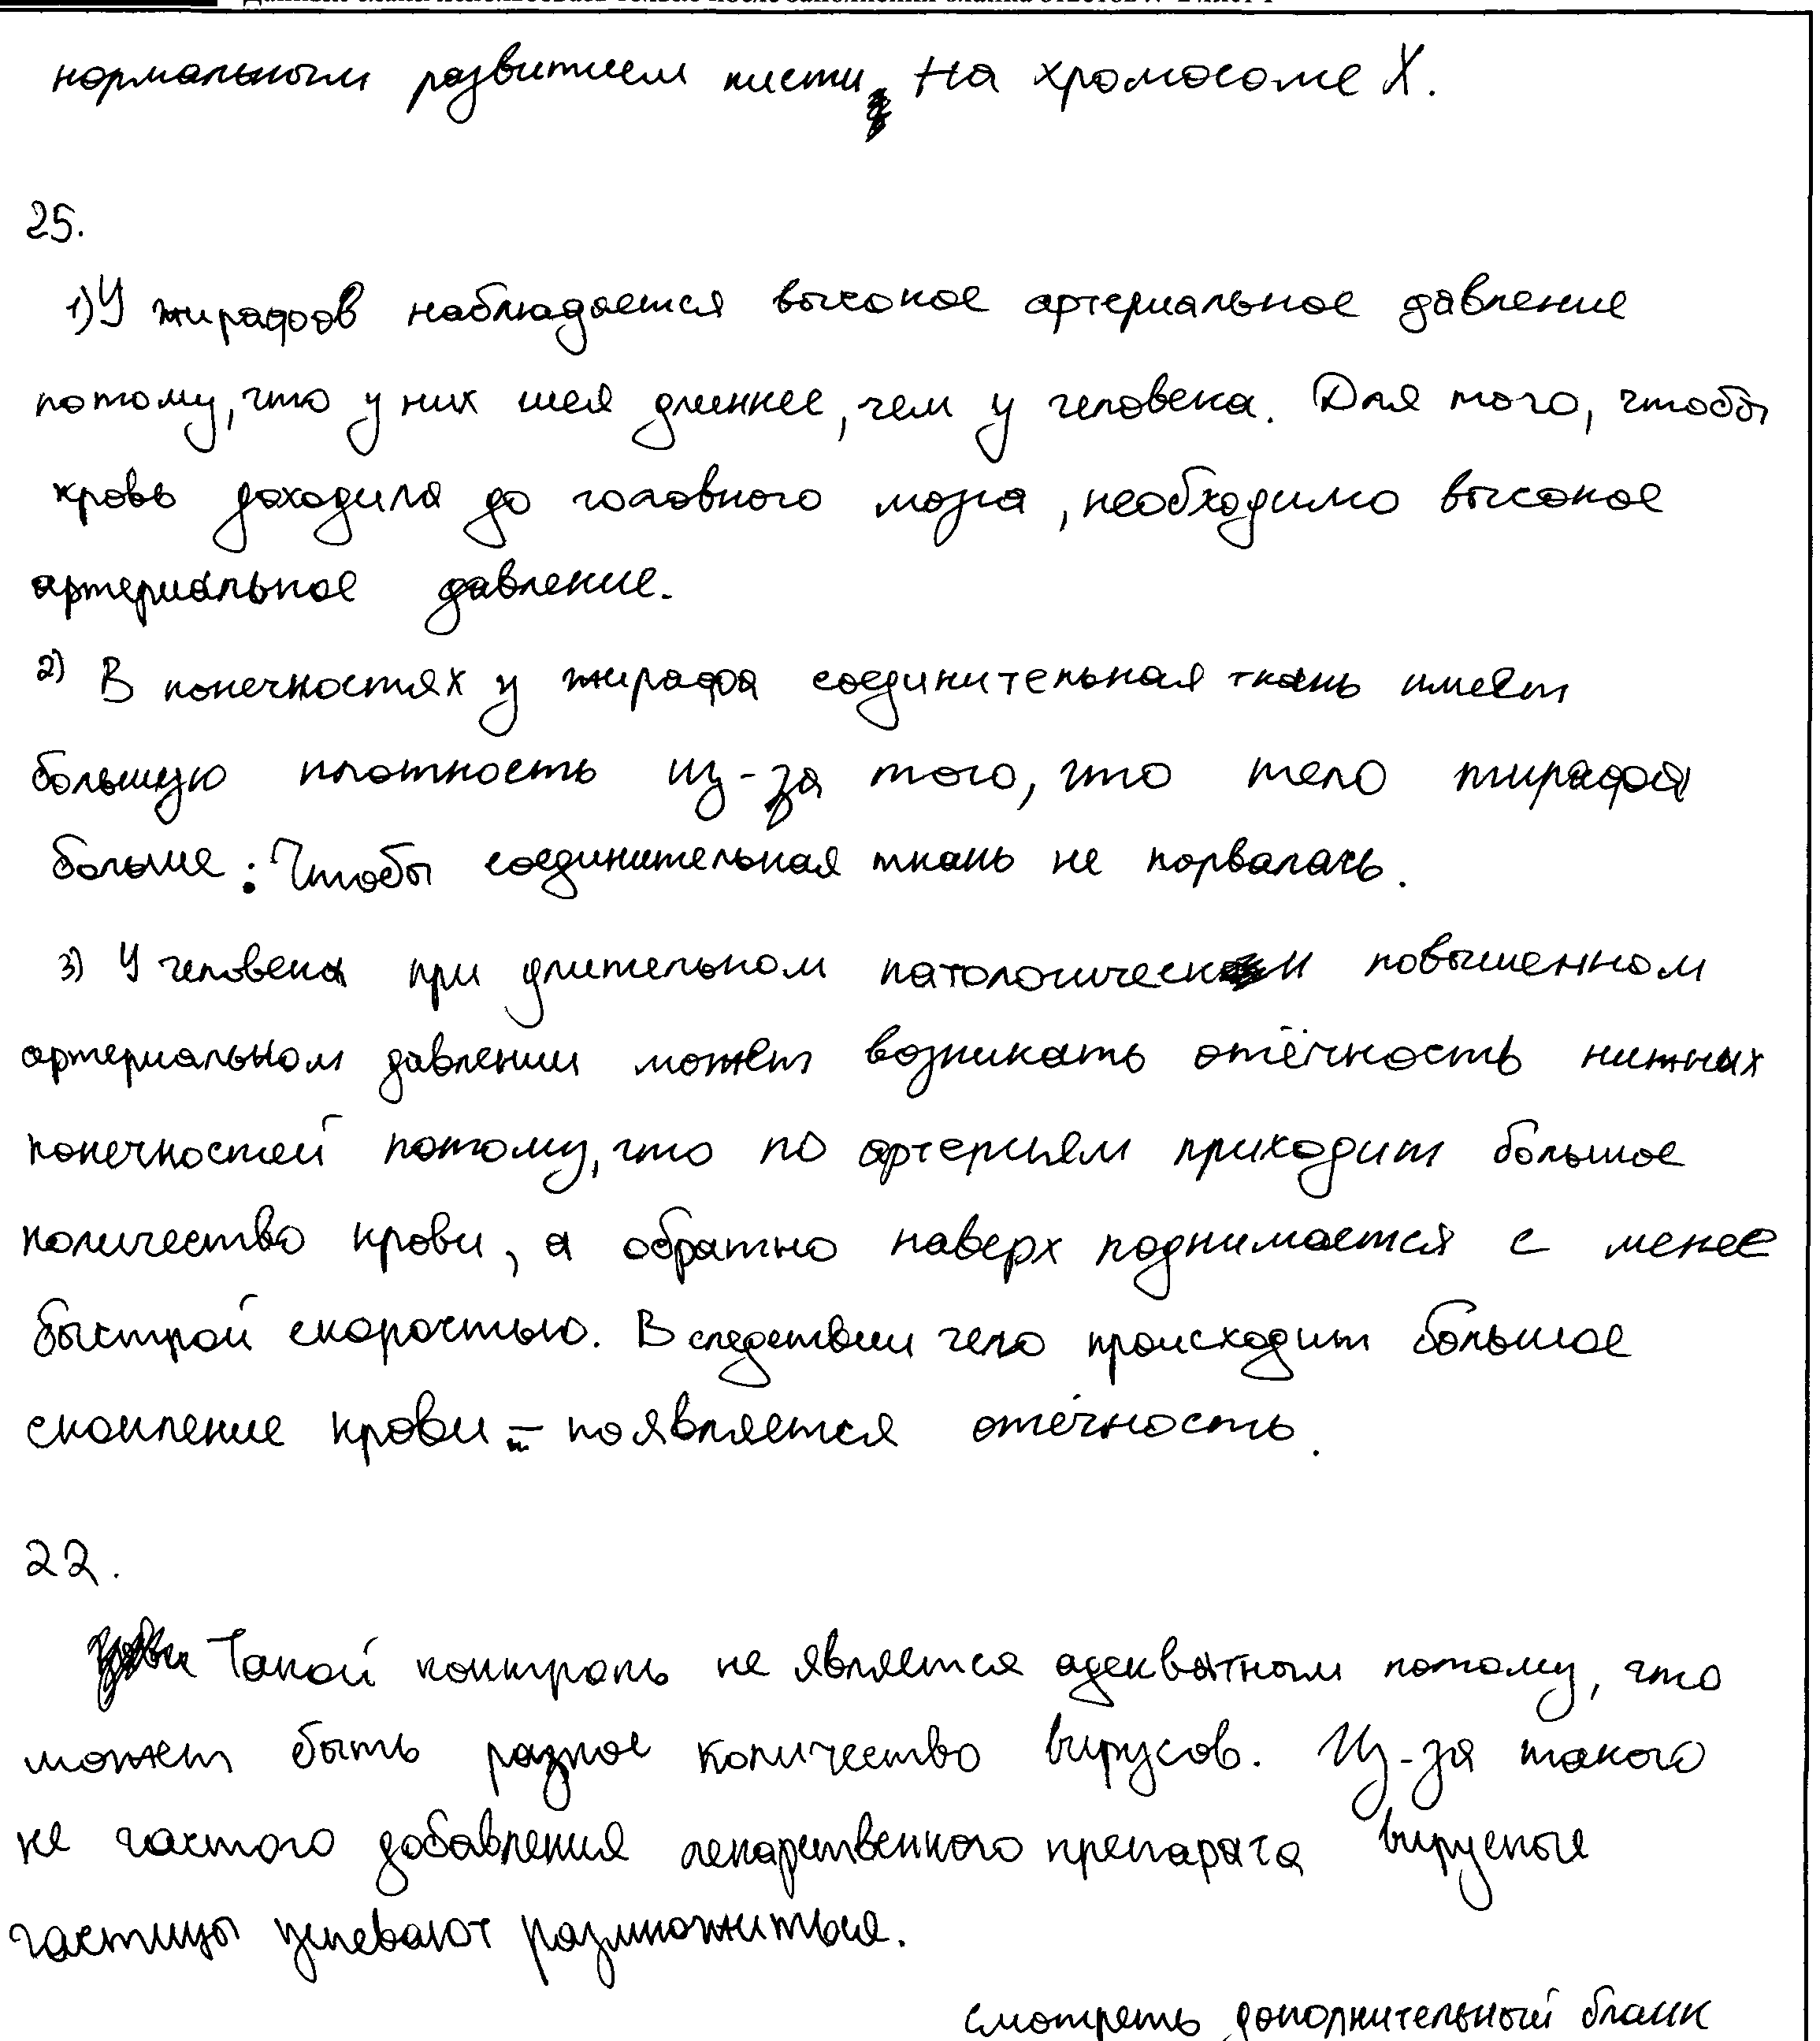 нормальным развитием кисти, на хромосоме X.
25.
1) У жирафов наблюдается высокое артериальное давление
потому, что у них шея длиннее, чем у человека. Для того, чтобы
кровь доходила до головного мозга, необходимо высокое
артериальное давление.
2) В конечностях у жирафа соединительная ткань имеет
большую плотность из-за того, что тело жирафа
больше: Чтобы соединительная ткань не порвалась.
3) У человека при длительном патологически повышенном
артериальном давлении может возникать отёчность нижних
конечностей потому, что по артериям приходит большое
количество крови, а обратно наверх поднимается с менее
быстрой скоростью. В следствии чего происходит большое
скопление крови – появляется отёчность.
22.
Такой контроль не является адекватным потому, что
может быть разное количество вирусов. Из-за такого
не частого добавления лекарственного препарата вирусные
частицы успевают размножиться.
смотреть дополнительный бланк